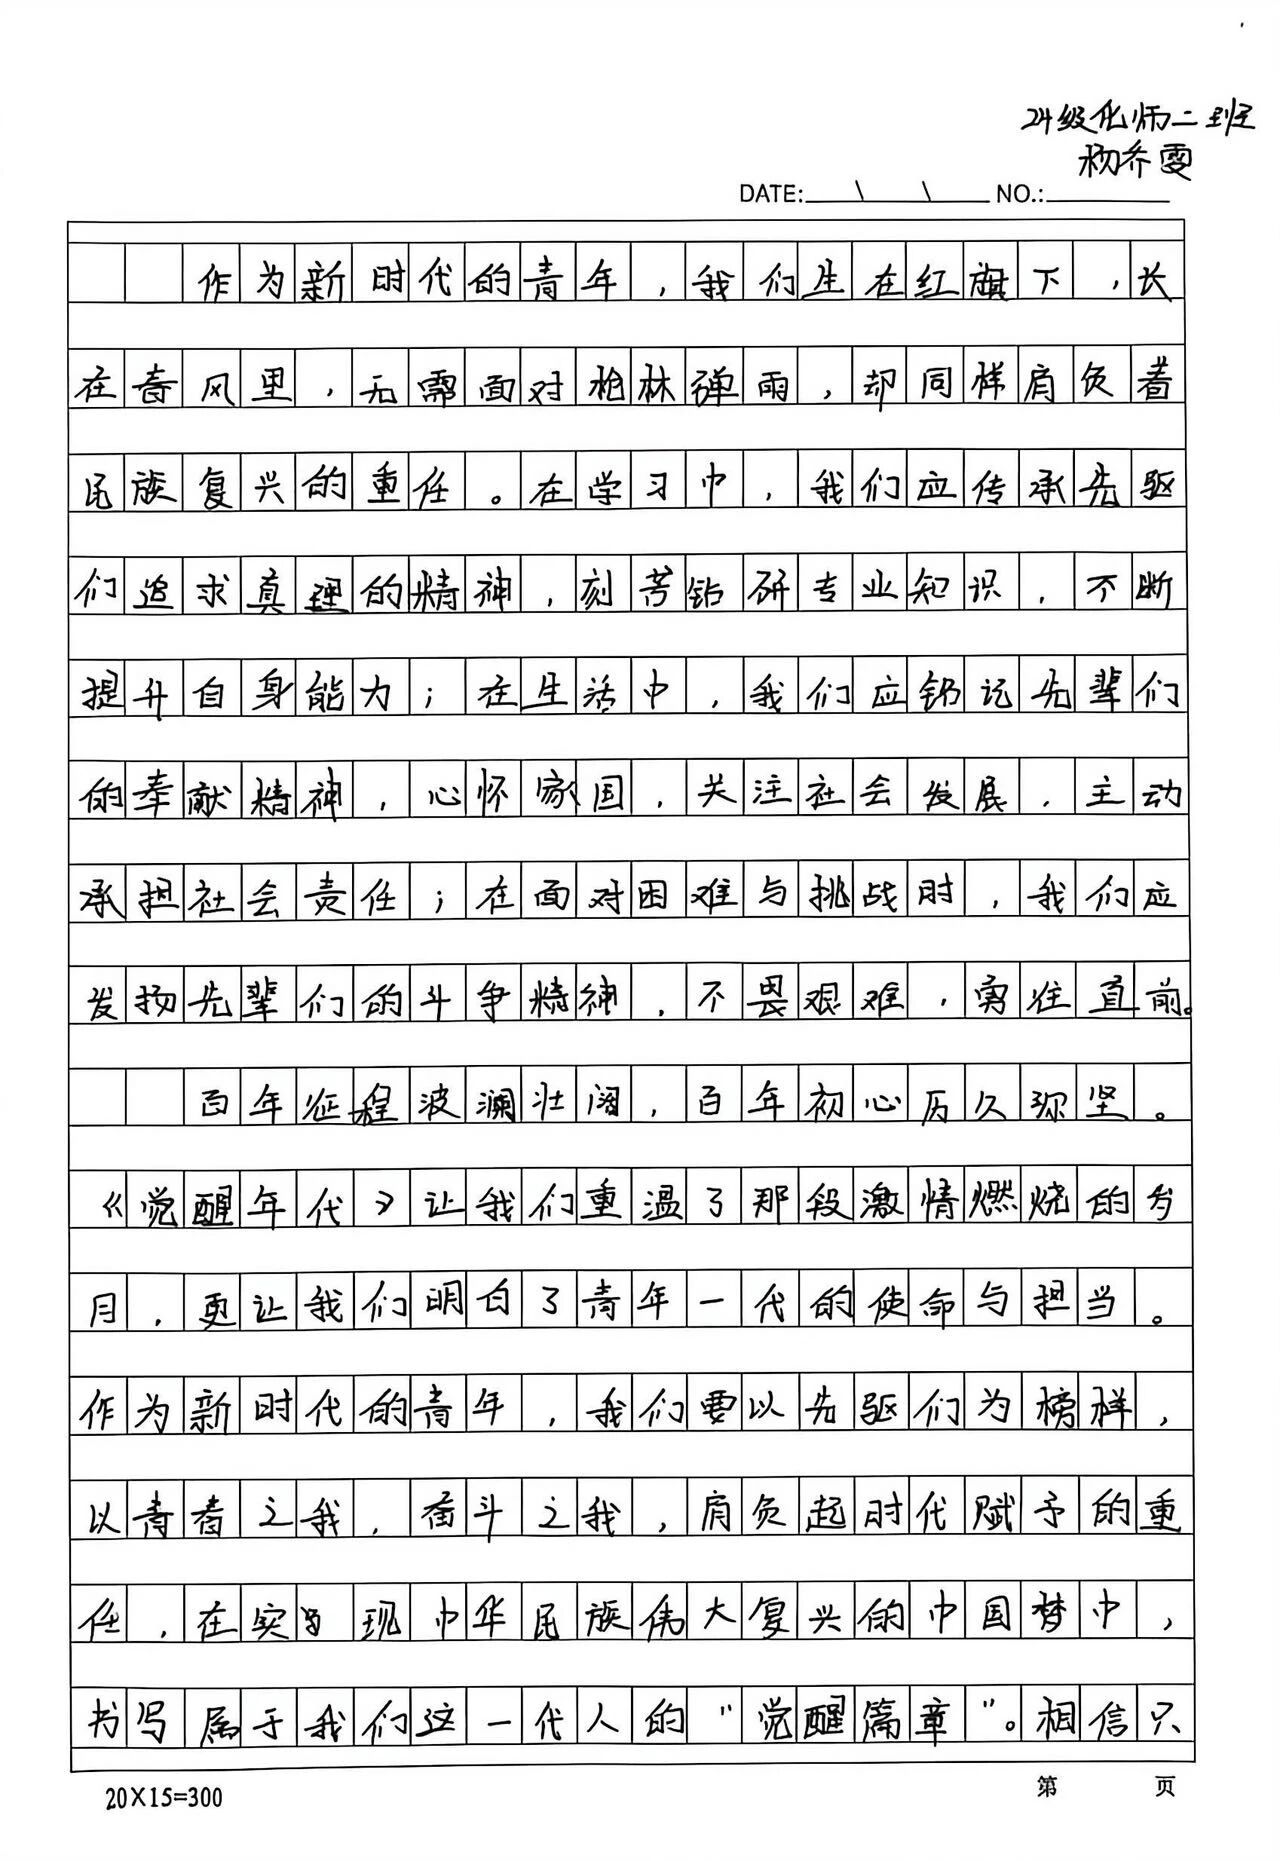 24级化师二班
杨乔雯
DATE: \ \ NO.:
作为新时代的青年，我们生在红旗下，长
在春风里，无需面对枪林弹雨，却同样肩负着
民族复兴的重任。在学习中，我们应传承先驱
们追求真理的精神，刻苦钻研专业知识，不断
提升自身能力；在生活中，我们应铭记先辈们
的奉献精神，心怀家国，关注社会发展，主动
承担社会责任；在面对困难与挑战时，我们应
发扬先辈们的斗争精神，不畏艰难，勇往直前。
百年征程波澜壮阔，百年初心历久弥坚。
《觉醒年代》让我们重温了那段激情燃烧的岁
月，更让我们明白了青年一代的使命与担当。
作为新时代的青年，我们要以先驱们为榜样，
以青春之我，奋斗之我，肩负起时代赋予的重
任，在实现中华民族伟大复兴的中国梦中，
书写属于我们这一代人的"觉醒篇章"。相信只
20×15=300
第 页